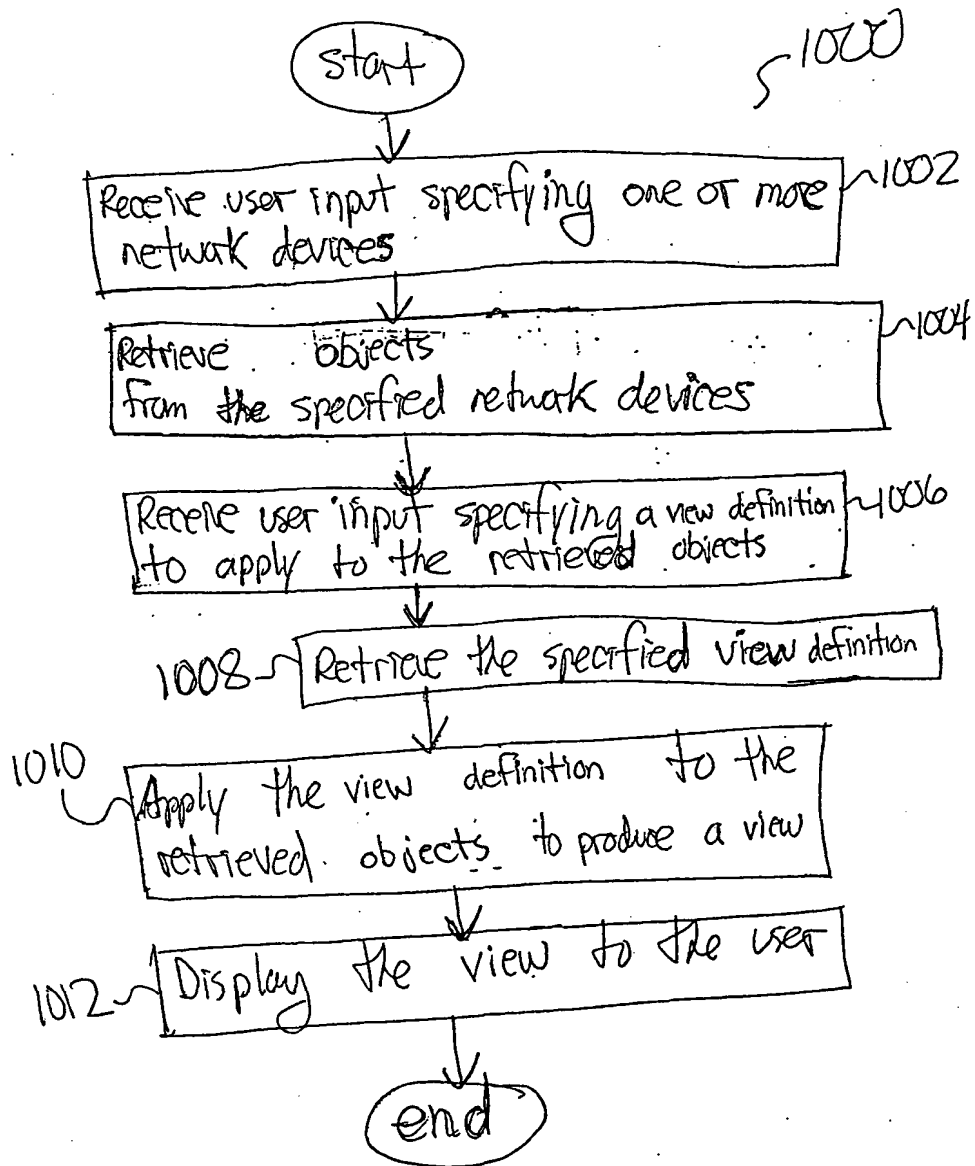 start
1000
Receive user input specifying one or more
network devices
1002
Retrieve objects
from the specified network devices
1004
Receive user input specifying a view definition
to apply to the retrieved objects
1006
1008
Retrieve the specified view definition
1010
Apply the view definition to the
retrieved objects to produce a view
1012
Display the view to the user
end